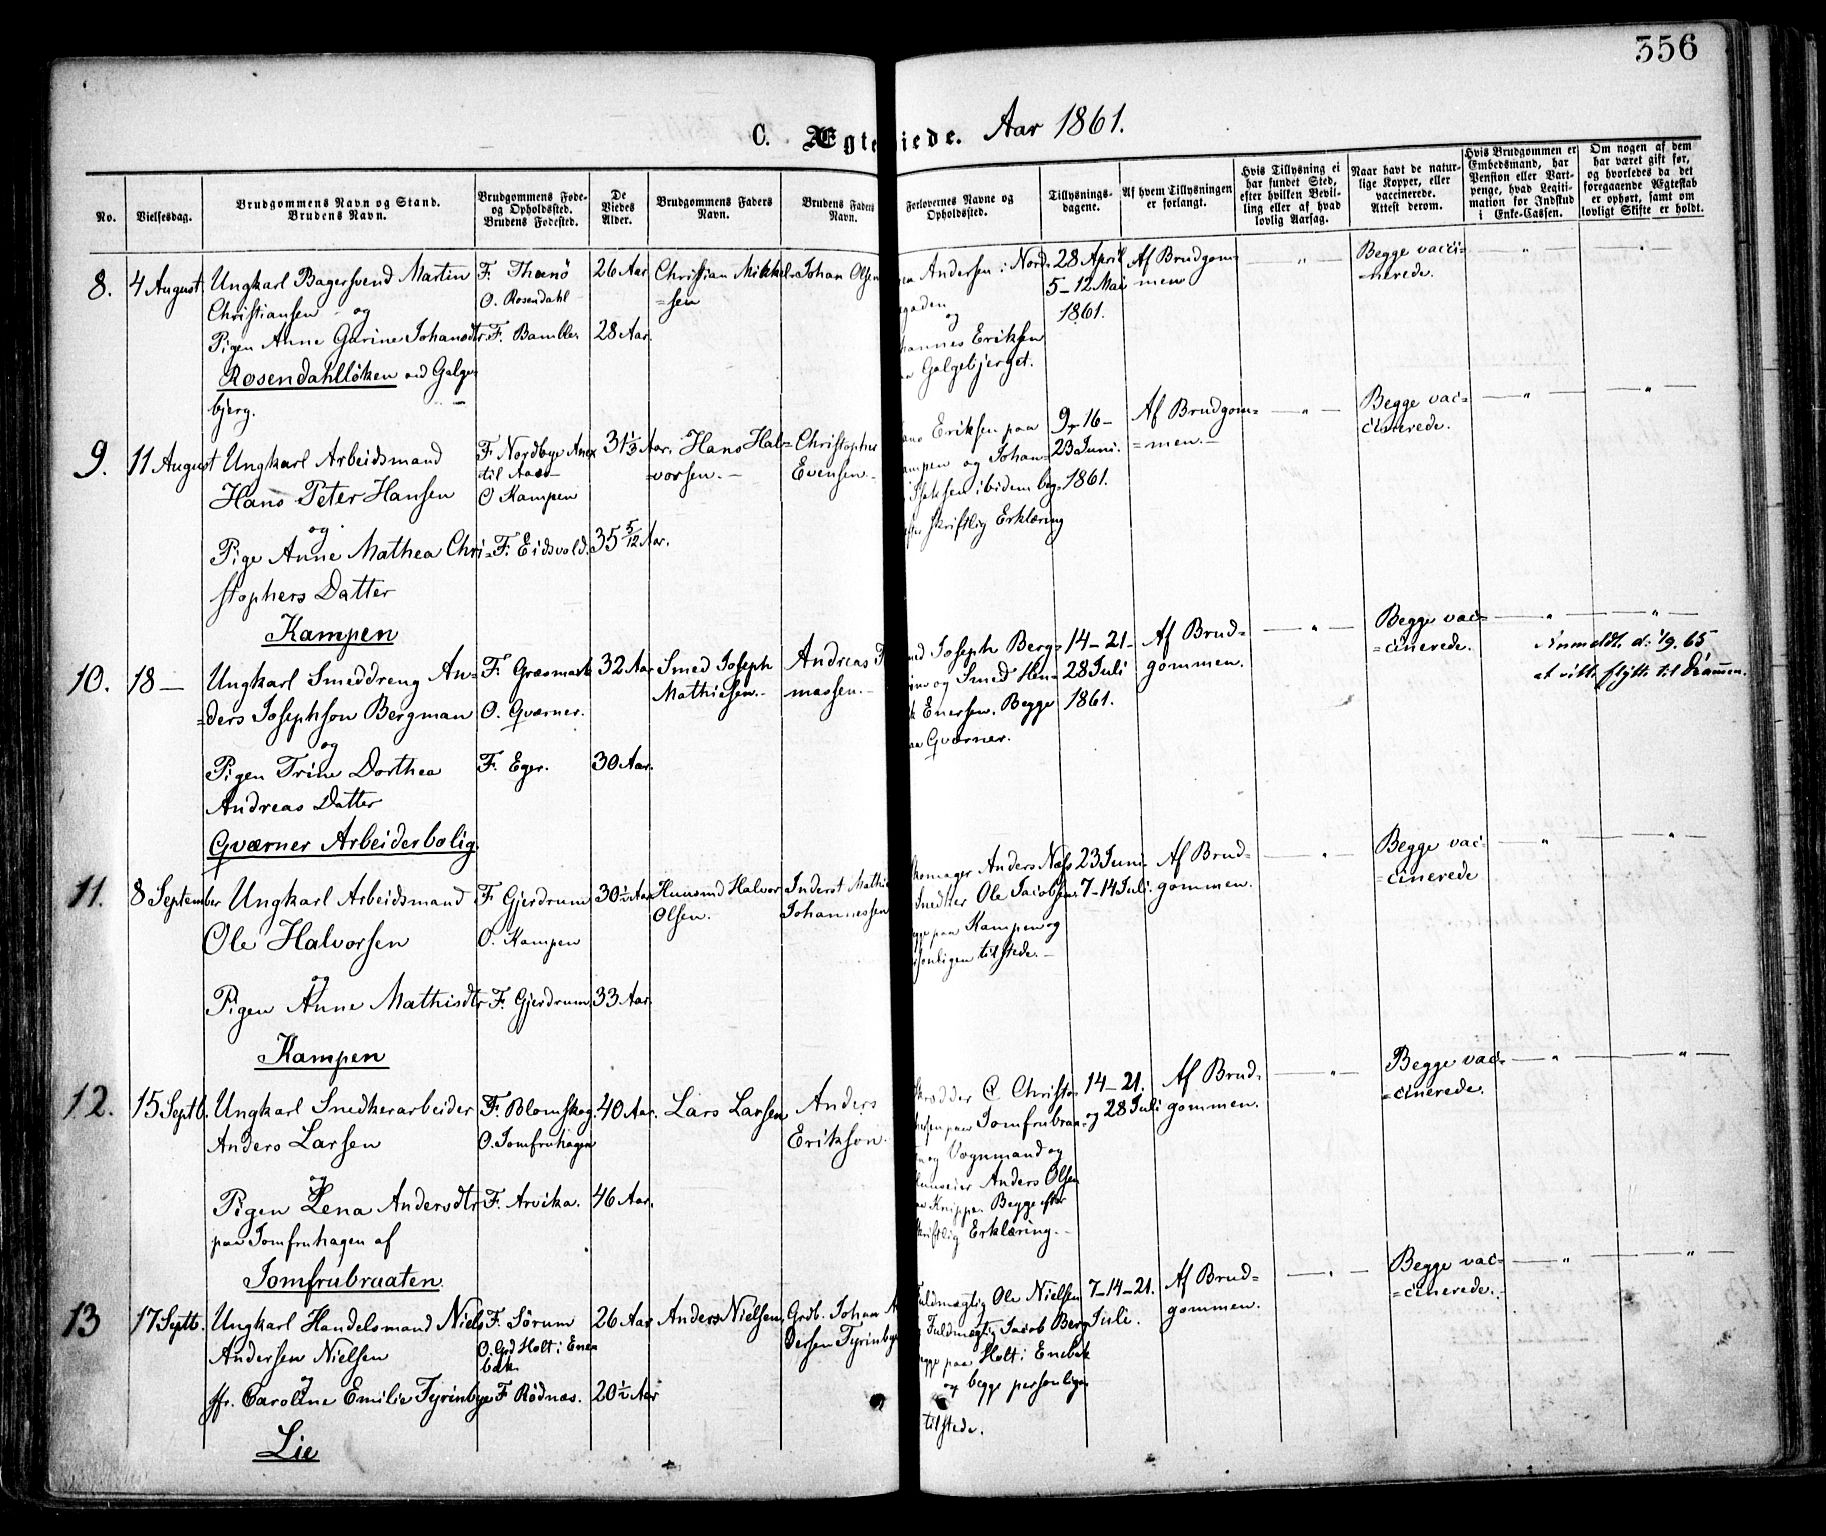 356
C. Ægteviede. Aar 1861.
No.
Vielsesdag.
Brudgommens Navn og Stand.
Brudens Navn.
Brudgommens Føde-
og Opholdssted.
Brudens Fødested.
De
Viedes
Alder.
Brudgommens Faders
Navn.
Brudens Faders
Navn.
Forlovernes Navne og
Opholdssted.
Tillysnings-
dagene.
Af hvem Tillysningen
er forlangt.
Hvis Tillysning ei
har fundet Sted,
efter hvilken Bevil-
ling eller af hvad
lovlig Aarsag.
Naar havt de natur-
lige Kopper, eller
vaccinerede.
Attest derom.
Hvis Brudgommen er
Embedsmand, har
Pension eller Vart-
penge, hvad Legiti-
mation for Indskud
i Enke-Cassen.
Om nogen af dem
har været gift før,
og hvorledes da det
forrgaaende Ægteskab
er ophørt, samt om
lovligt Skifte er holdt.
8.
4 August.
Ungkarl Bagersvend Martin
Christiansen og
Pigen Anne Garine Johansdtr
Rosendahlløken ved Galge-
bjerg.
F. Thenö
O. Rosendahl
F. Bamble.
26 Aar
28 Aar.
Christian Mikkel-
=sen
Johan Olsen
Andersen i Nord-
gaden
og
hannes Eriksen
Galgebjerget.
28 April
5-12 Mai
1861.
Af Brudgom-
men
Begge vacci-
=nerede.
9.
11 August
Ungkarl Arbeidsmand
Hans Peter Hansen
og
Pige Anne Mathea Chri-
stophers Datter
Kampen
F Nordbye Anex
til Aas
O Kampen
F. Eidsvold.
31 1/3 Aar.
35 5/12 Aar.
Hans Hal=
vorsen.-
Christopher
Evensen.-
Eriksen paa
ampen og Johan-
Isaksen ibidem beg-
skriftlig Erklæring
9-16-
23 Juni.
1861.
Af Brudgom=
=men.-
Begge vac=
cinerede.
10.
18 —
Ungkarl Smeddreng An-
=ders Josephson Bergman
og
Pigen Trine Dorthea
Andreas Datter
Gværner Arbeiderbolig.
F. Græsmark
O. Gværner.
F. Eger.
32 Aar
30 Aar.
Smed Joseph
Mathiesen.-
Andreas
massen.-
Joseph Berg-
og Smed Hen-
Enersen. Begge
Gværner.
14-21-
28 Juli
1861.
Af Brud=
gommen.
Begge vac=
=cinerede.
Anmeldt d: 1/9. 65
11.
8 September
Ungkarl Arbeidsmand
Ole Halvorsen
og
Pigen Anne Mathisdtr
Kampen
F. Gjerdrum
O. Kampen
F. Gjerdrum
30 1/2 Aar
33 Aar.
Huusmd Halvor
Olsen.
Inderst Mathi
Johannessen
komager Anders Næls
Snedker Ole Jacobsen.
paa Kampen og
sonligen tilstede.-
23 Juni
7-14 Juli.
Af Brud=
gommen.
Begge vac=
=cinerede
12.
15 Septb.
Ungkarl Snedkerarbeider
Anders Larsen
og
Pigen Lena Andersdtr
paa Jomfruhagen af
Jomfrubraaten.
F. Blomskog.
O. Jomfruhagen
F. Arvika.
40 Aar.
46 Aar.
Lars Larsen
Anders
Erikson.
krædder C Christo-
phersen paa Jomfrubraa-
og Vognmand og
Anders Olsen
Knippe. Begge efter
skriftlig Erklæring.-
14-21.
og 28 Juli
Af Brud=
gommen.
Begge vac=
=cinerede.
13
17 Septb.
Ungkarl Handelsmand Niels
Andersen Nielsen
og
Jfr. Caroline Emilie Tyrinbye
Lie
F. Sörum
O. Grd Holt i Ene-
bak
F. Rödnæs.
26 Aar
20 1/2 Aar
Anders Nielsen.
Grdb. Johan A
dersen Tyrinbye
Fuldmægtig Ole Nielsen
Fuldmægtig Jacob Berg
paa Holt i Enebak
og begge personligen
tilstede.
7-14-21.
Juli.
Af Brud=
gommen.
Begge vac=
=cinerede.